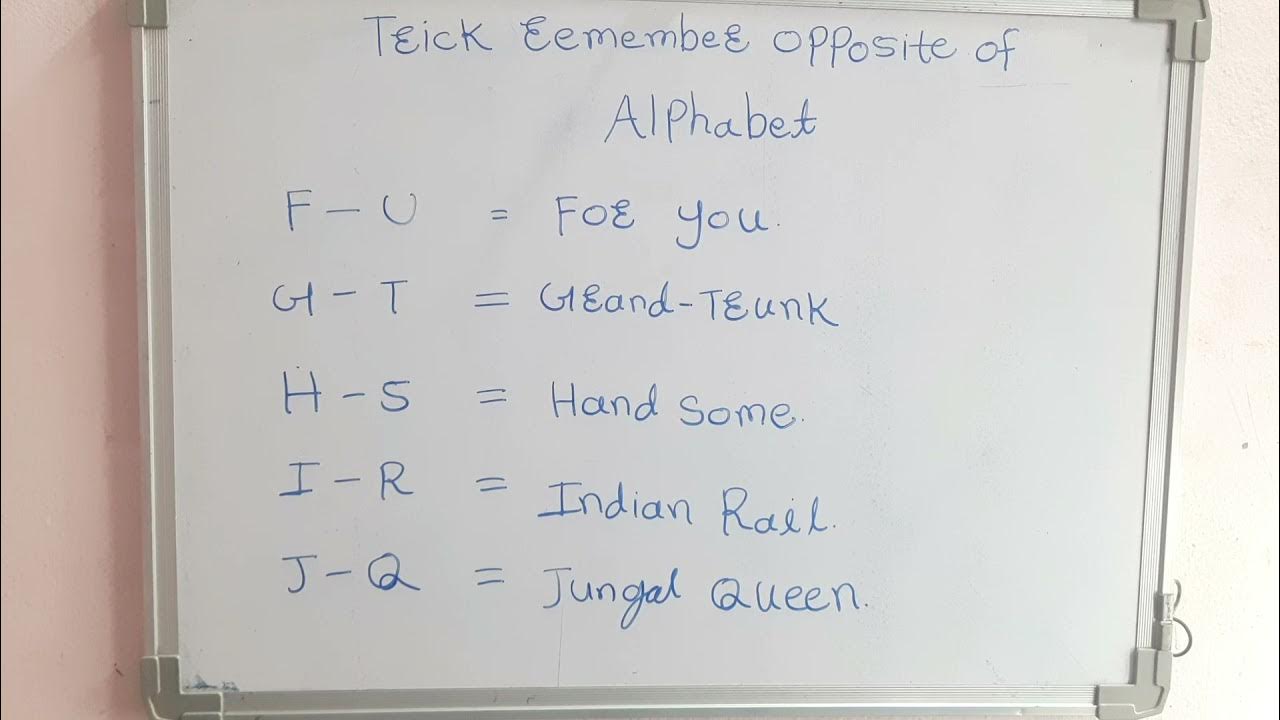 Trick remember opposite of
Alphabet
F - U = For you.
G - T = Grand-Trunk
H - S = Hand some.
I - R = Indian Rail.
J - Q = Jungal Queen.